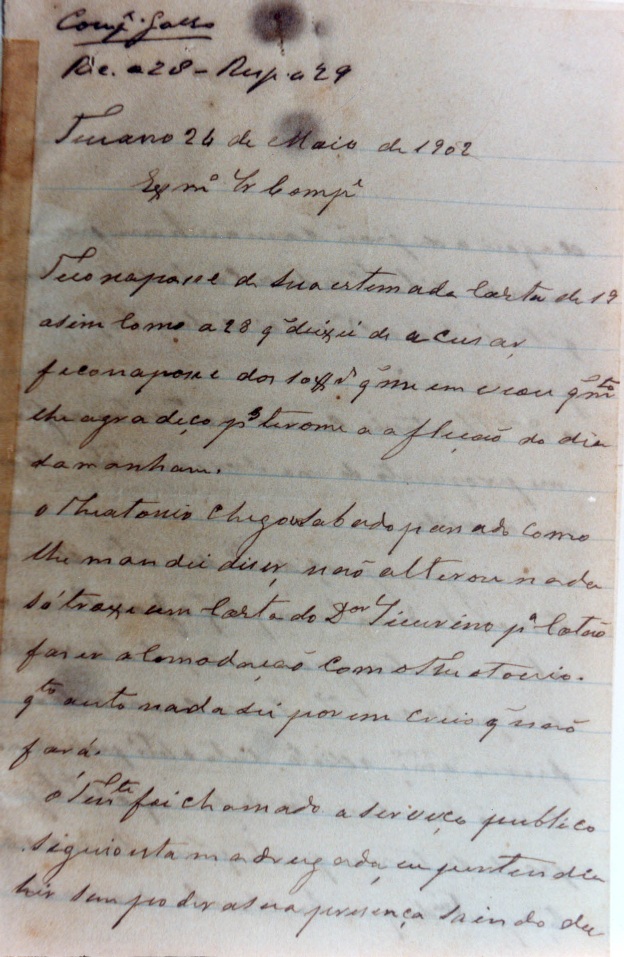 Comp.e Gallo
Rec. a 28 - Resp. a 29
Tucano 24 de Maio de 1902
Exmº Sr Comp.e
Fico naposse de sua estemada Carta de 19
asim Como a 28 q deixei de acusar,
ficonaposse dos q me emviou q m.to
lhe agradeço p.s tirome a aflição do dia
damanham.
o Theatonio chegou sabado pasado como
lhe mandei diser, naõ alterou nada
só traxe um Carta do D.or p.a Catão
faser acomodaçaõ com o Theotonio.
q.to auto nada sei porem creio q naõ
fará.
O Ten.te foi chamado a serviço publico
siguio esta madrugada, eu pertendia
hir sem poder a sua presença saindo da